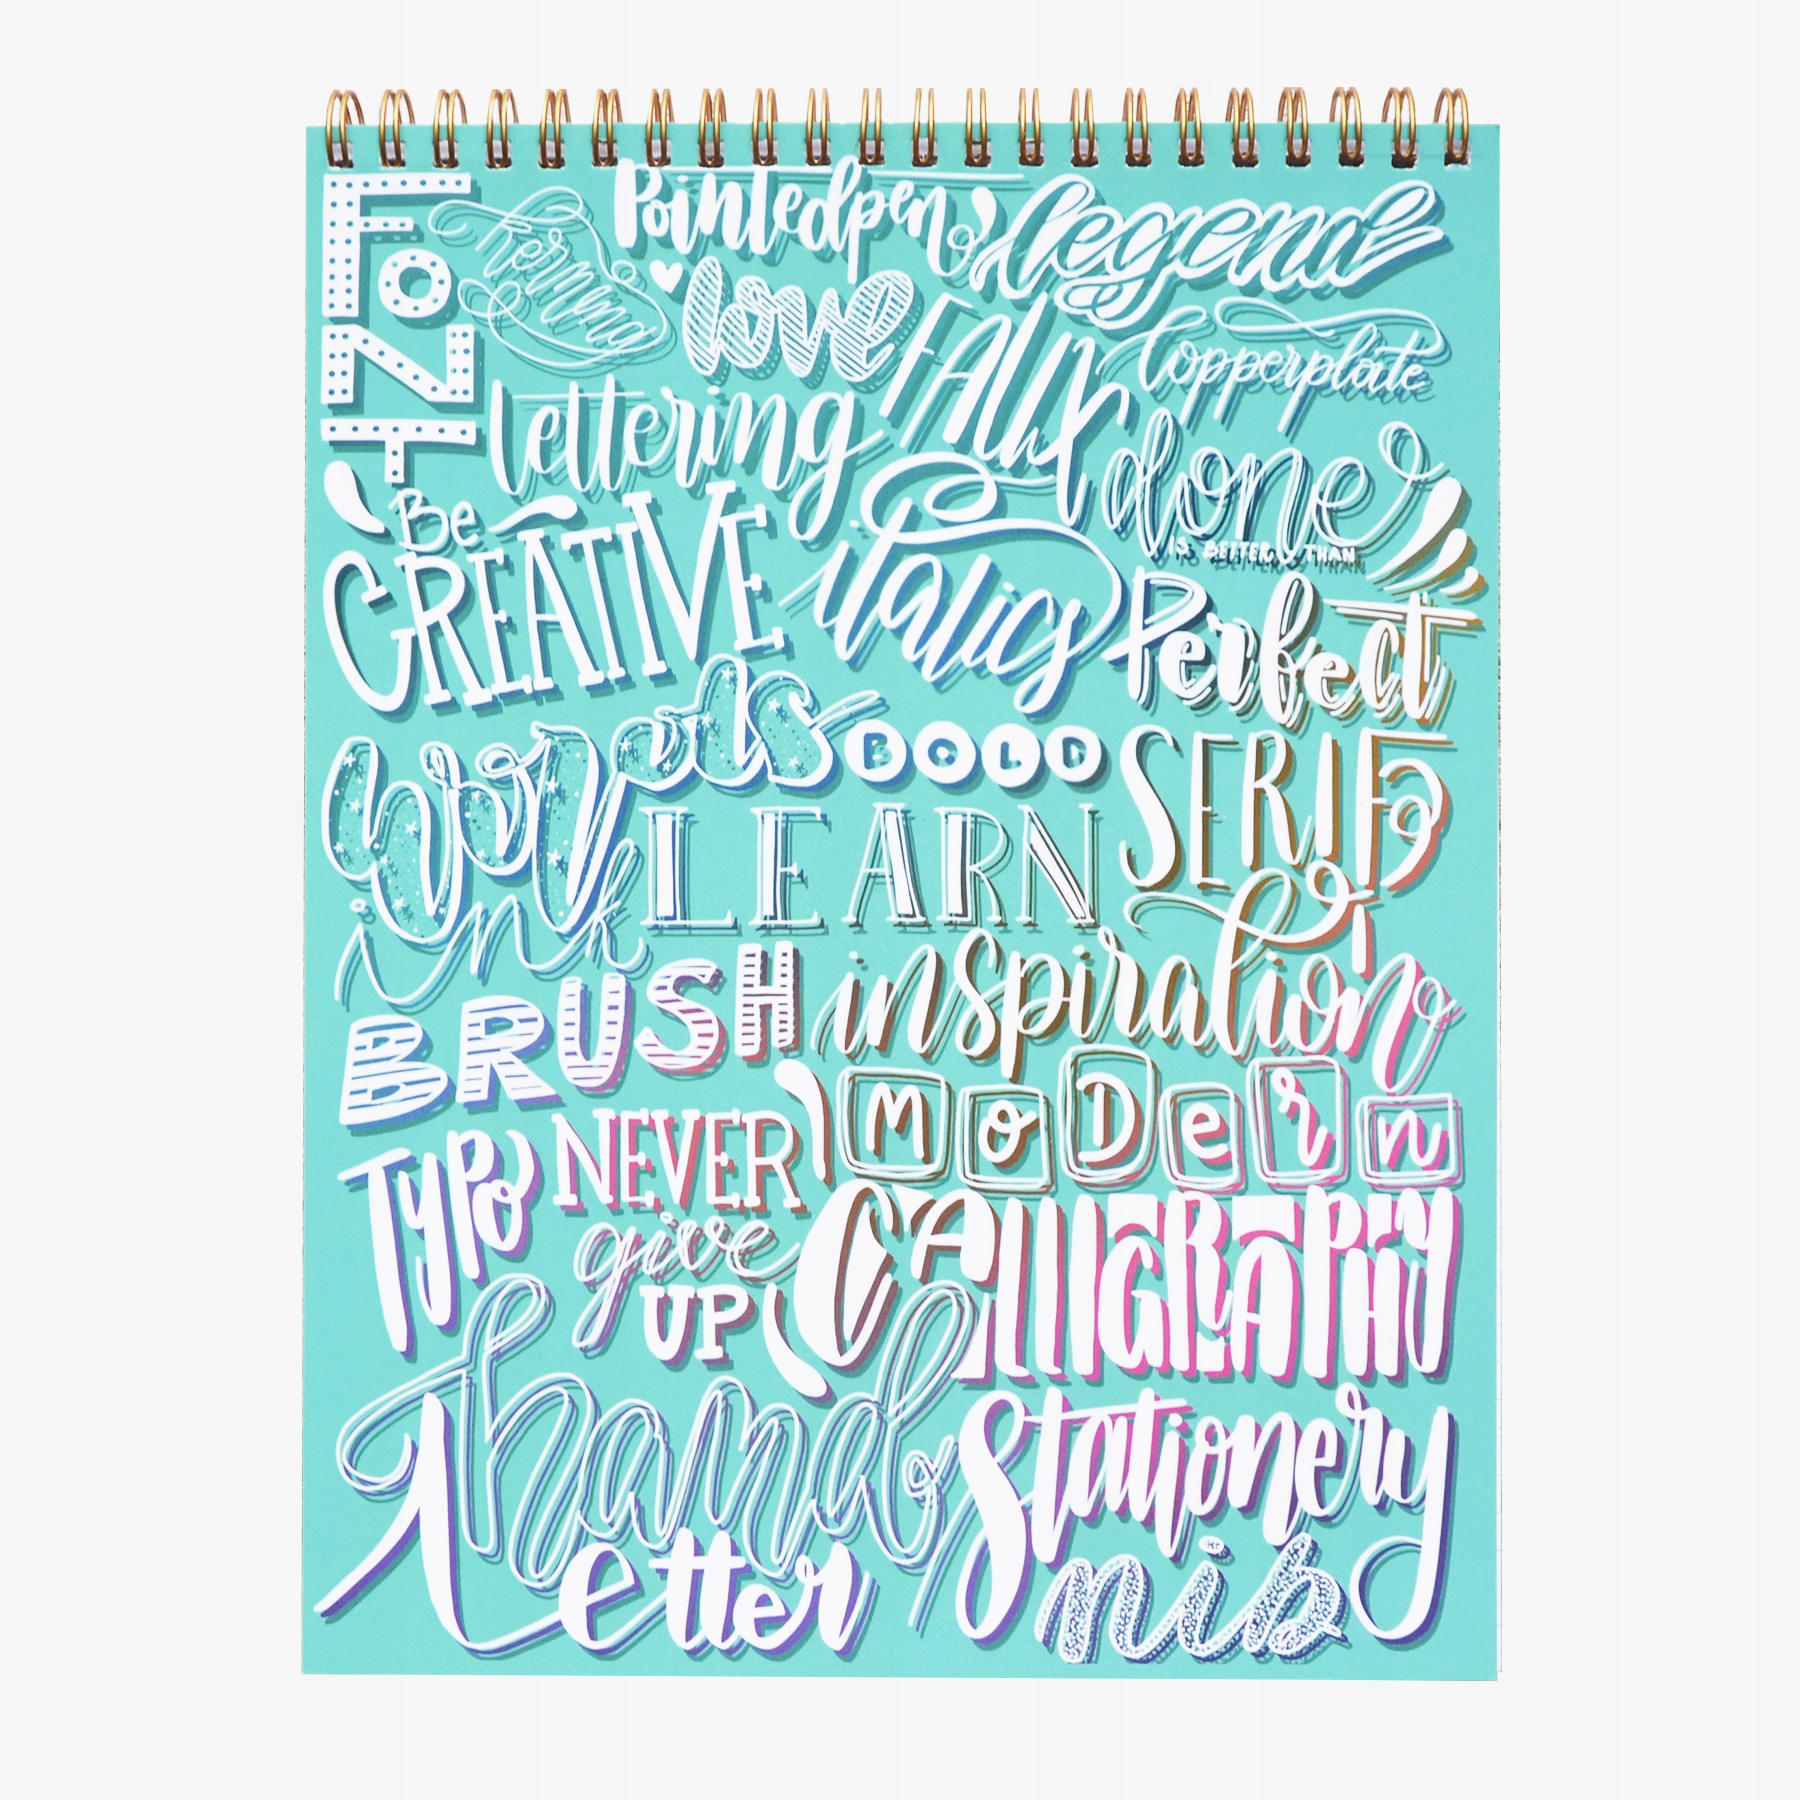 FoNT
Pointedpen
legend
love
FAUX
Copperplate
lettering
done
IS BETTER THAN
Perfect
Be
CREATIVE
italics
words
BOLD
SERIF
LEARN
ink
BRUSH
inspiration
MoDern
TYPO
NEVER
give
UP
CALLIGRAPHY
hand
Letter
Stationery
nib